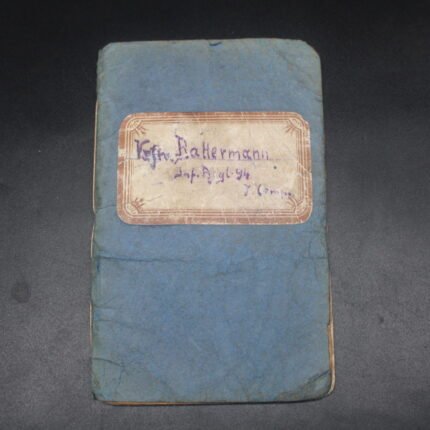 Kfrw. Rattermann
Inf. Regt. 94
7. Comp.